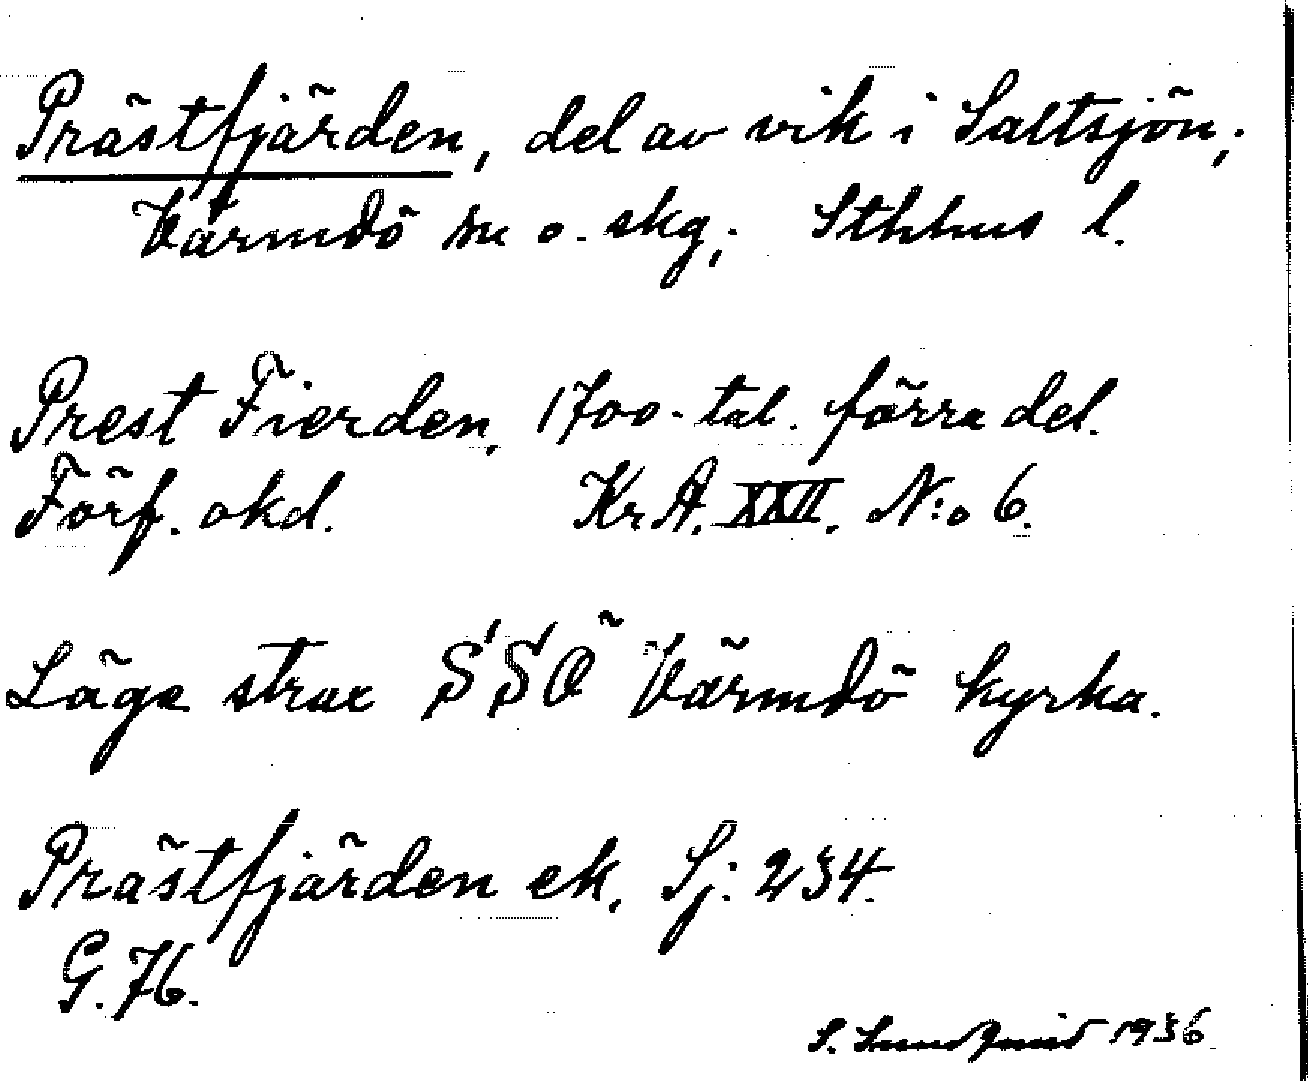 Prästfjärden, del av vik i Saltsjön;
Värmdö sn o. skg; Sthlms l.
Prest Fierden, 1700-tal. förra del.
Förf. okd. Kr.A. XXII. N:o 6.
Läge strax S'S'Ö Värmdö kyrka.
Prästfjärden ek. Sj: 234.
G. 76.
S. Lundqvist 1936